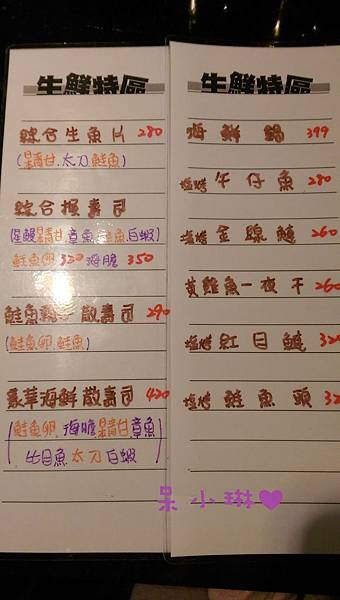 生鮮特區
綜合生魚片 280
(青甘.太刀.鮭魚)
綜合握壽司
(星鰻青甘章魚鮭魚白蝦)
鮭魚卵320 海膽 350
鮭魚親子散壽司 290
(鮭魚卵.鮭魚)
豪華海鮮散壽司 420
(鮭魚卵.海膽青甘章魚
比目魚太刀白蝦)
生鮮特區
海鮮鍋 399
塩烤午仔魚 280
塩烤金線鰱 260
黃雞魚一夜干 260
塩烤紅目鰱 320
塩烤鮭魚頭 32
呆小琳♥